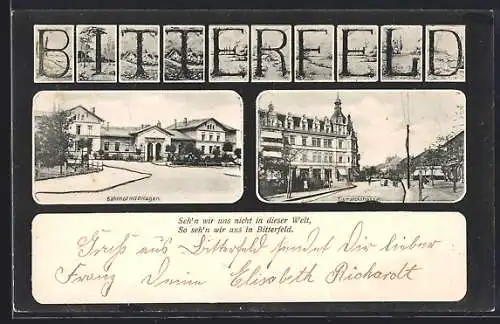 BITTERFELD
Bahnhof mit Anlagen.
Bismarckstrasse.
Seh'n wir uns nicht in dieser Welt,
So seh'n wir uns in Bitterfeld.
Gruß aus Bitterfeld sendet Dir lieber
Franz Deine Elisabeth Richardt